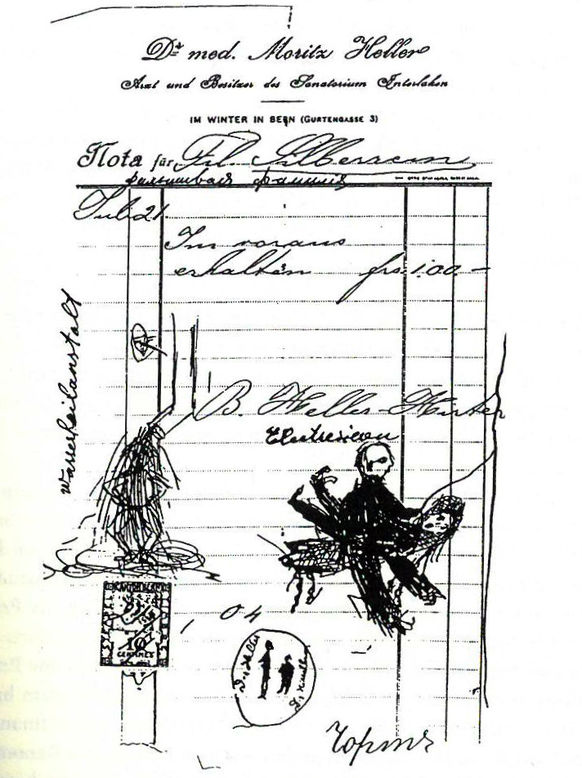 Dr. med. Moritz Heller
Arzt und Besitzer des Sanatorium Interlaken
IM WINTER IN BERN (GURTENGASSE 3)
Nota für Frl. Silberrein
Juli 21.
Im voraus
erhalten frs. 100.-
Wasserheilanstalt
B. Heller-Hirter
Electriciren
10
04
Dr Heller